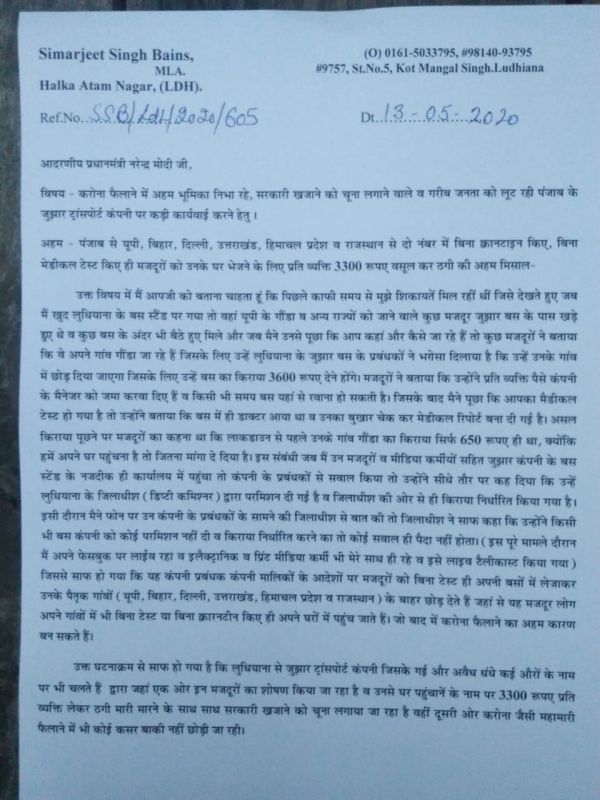 Simarjeet Singh Bains,
MLA.
Halka Atam Nagar, (LDH).
(O) 0161-5033795, #98140-93795
#9757, St.No.5, Kot Mangal Singh.Ludhiana
Ref.No...SSB/Ldh/2020/605
Dt...13-05-2020
आदरणीय प्रधानमंत्री नरेन्द्र मोदी जी,
विषय - करोना फैलाने में अहम भूमिका निभा रहे, सरकारी खजाने को चूना लगाने वाले व गरीब जनता को लूट रही पंजाब के
जुझार ट्रांसपोर्ट कंपनी पर कड़ी कार्यवाई करने हेतु ।
अहम - पंजाब से यूपी, बिहार, दिल्ली, उत्तराखंड, हिमाचल प्रदेश व राजस्थान से दो नंबर में बिना क्रानटाइन किए, बिना
मेडीकल टेस्ट किए ही मजदूरों को उनके घर भेजने के लिए प्रति व्यक्ति 3300 रूपए वसूल कर ठगी की अहम मिसाल-
उक्त विषय में मैं आपजी को बताना चाहता हूं कि पिछले काफी समय से मुझे शिकायतें मिल रहीं थीं जिसे देखते हुए जब
मैं खुद लुधियाना के बस स्टैंड पर गया तो वहां यूपी के गौंडा व अन्य राज्यों को जाने वाले कुछ मजदूर जुझार बस के पास खड़े
हुए थे व कुछ बस के अंदर भी बैठे हुए मिले और जब मैने उनसे पूछा कि आप कहां और कैसे जा रहे हैं तो कुछ मजदूरों ने बताया
कि वे अपने गांव गौंडा जा रहे हैं जिसके लिए उन्हें लुधियाना के जुझार बस के प्रबंधकों ने भरोसा दिलाया है कि उन्हें उनके गांव
में छोड़ दिया जाएगा जिसके लिए उन्हें बस का किराया 3600 रूपए देने होंगे। मजदूरों ने बताया कि उन्होंने प्रति व्यक्ति पैसे कंपनी
के मैनेजर को जमा करवा दिए हैं व किसी भी समय बस यहां से रवाना हो सकती है। जिसके बाद मैने पूछा कि आपका मैडीकल
टेस्ट हो गया है तो उन्होंने बताया कि बस में ही डाक्टर आया था व उनका बुखार चेक कर मेडीकल रिपोर्ट बना दी गई है। असल
किराया पूछने पर मजदूरों का कहना था कि लाकडाउन से पहले उनके गांव गौंडा का किराया सिर्फ 650 रूपए ही था, क्योंकि
हमें अपने घर पहुंचना है तो जितना मांगा दे दिया है। इस संबंधी जब मैं उन मजदूरों व मीडिया कर्मीयों सहित जुझार कंपनी के बस
स्टैंड के नजदीक ही कार्यालय में पहुंचा तो कंपनी के प्रबंधकों से सवाल किया तो उन्होंने सीधे तौर पर कह दिया कि उन्हें
लुधियाना के जिलाधीश ( डिप्टी कमिश्नर ) द्वारा परमिशन दी गई है व जिलाधीश की ओर से ही किराया निर्धारित किया गया है।
इसी दौरान मैने फोन पर उन कंपनी के प्रबंधकों के सामने की जिलाधीश से बात की तो जिलाधीश ने साफ कहा कि उन्होंने किसी
भी बस कंपनी को कोई परमिशन नहीं दी व किराया निर्धारित करने का तो कोई सवाल ही पैदा नहीं होता। ( इस पूरे मामले दौरान
मैं अपने फेसबुक पर लाईव रहा व इलैक्ट्रानिक व प्रिंट मीडिया कर्मी भी मेरे साथ ही रहे व इसे लाइव टैलीकास्ट किया गया )
जिससे साफ हो गया कि यह कंपनी प्रबंधक कंपनी मालिकों के आदेशों पर मजदूरों को बिना टेस्ट ही अपनी बसों में लेजाकर
उनके पैतृक गांवों ( यूपी, बिहार, दिल्ली, उत्तराखंड, हिमाचल प्रदेश व राजस्थान ) के बाहर छोड़ देते हैं जहां से यह मजदूर लोग
अपने गांवों में भी बिना टेस्ट या बिना क्रारनटीन किए ही अपने घरों में पहुंच जाते हैं। जो बाद में करोना फैलाने का अहम कारण
बन सकते हैं।
उक्त घटनाक्रम से साफ हो गया है कि लुधियाना से जुझार ट्रांसपोर्ट कंपनी जिसके गई और अवैध धंधे कई औरों के नाम
पर भी चलते हैं द्वारा जहां एक ओर इन मजदूरों का शोषण किया जा रहा है व उनसे घर पहुंचानें के नाम पर 3300 रूपए प्रति
व्यक्ति लेकर ठगी मारी मारने के साथ साथ सरकारी खजाने को चूना लगाया जा रहा है वहीं दूसरी ओर करोना जैसी महामारी
फैलाने में भी कोई कसर बाकी नहीं छोड़ी जा रही।